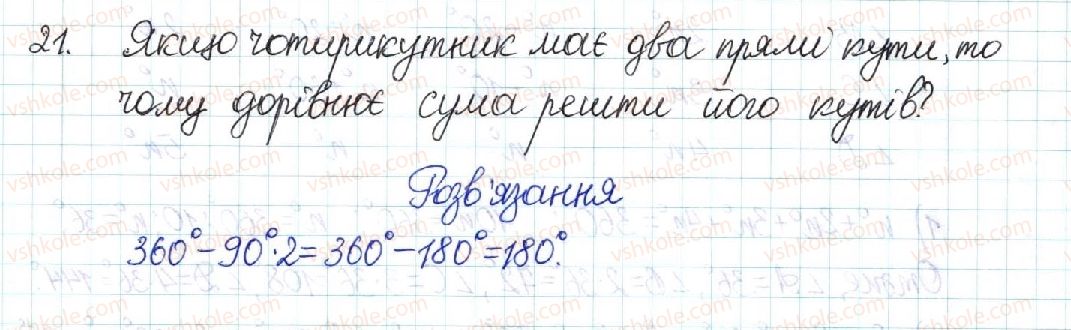 21. Якщо чотирикутник має два прямі кути, то
чому дорівнює сума решти його кутів?
Розв'язання
360° – 90°·2 = 360° – 180° = 180°.